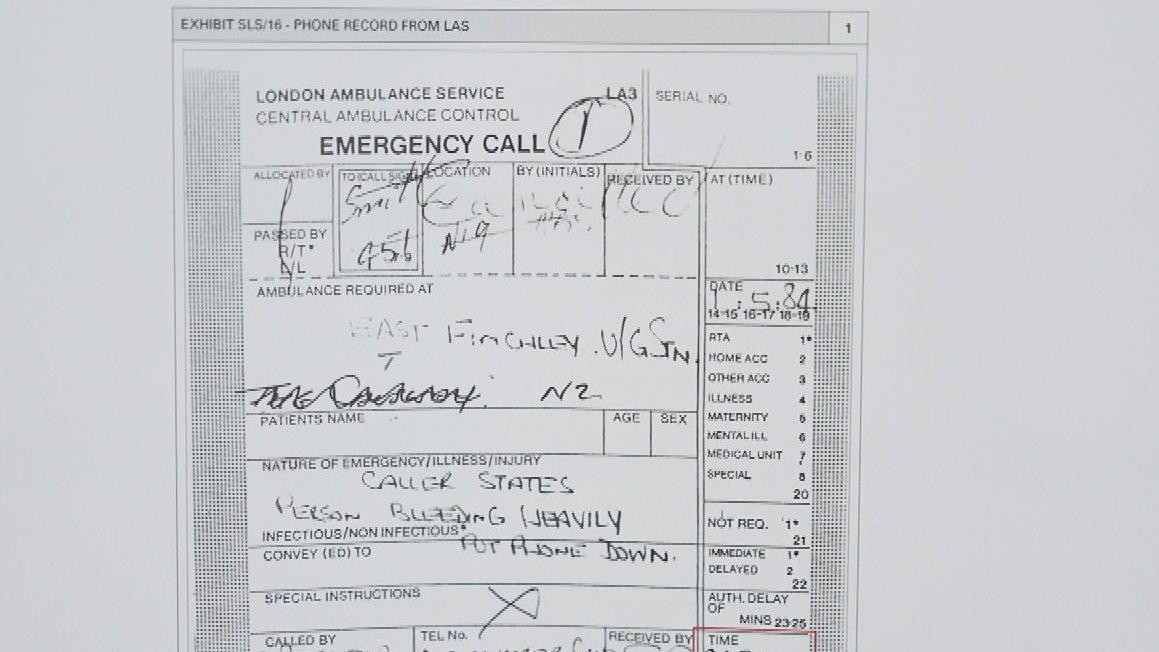 EXHIBIT SLS/16 - PHONE RECORD FROM LAS 1
LONDON AMBULANCE SERVICE LA3 SERIAL NO.
CENTRAL AMBULANCE CONTROL
EMERGENCY CALL 1
1-6
ALLOCATED BY TO (CALL SIGN) LOCATION BY (INITIALS) RECEIVED BY AT (TIME)
Smith
N19
PASSED BY
R/T*
L/L
10-13
AMBULANCE REQUIRED AT DATE
1:5:84
14-15 16-17 18-19
EAST FINCHLEY U/G STN.
N2
RTA 1*
HOME ACC 2
OTHER ACC 3
ILLNESS 4
MATERNITY 5
MENTAL ILL 6
MEDICAL UNIT 7
SPECIAL 8
20
PATIENTS NAME AGE SEX
NATURE OF EMERGENCY/ILLNESS/INJURY
CALLER STATES
PERSON BLEEDING HEAVILY
INFECTIOUS/NON INFECTIOUS*
PUT PHONE DOWN.
NOT REQ. 1*
21
CONVEY (ED) TO IMMEDIATE 1*
DELAYED 2
22
SPECIAL INSTRUCTIONS AUTH. DELAY
OF
MINS 23-25
CALLED BY TEL No. RECEIVED BY TIME